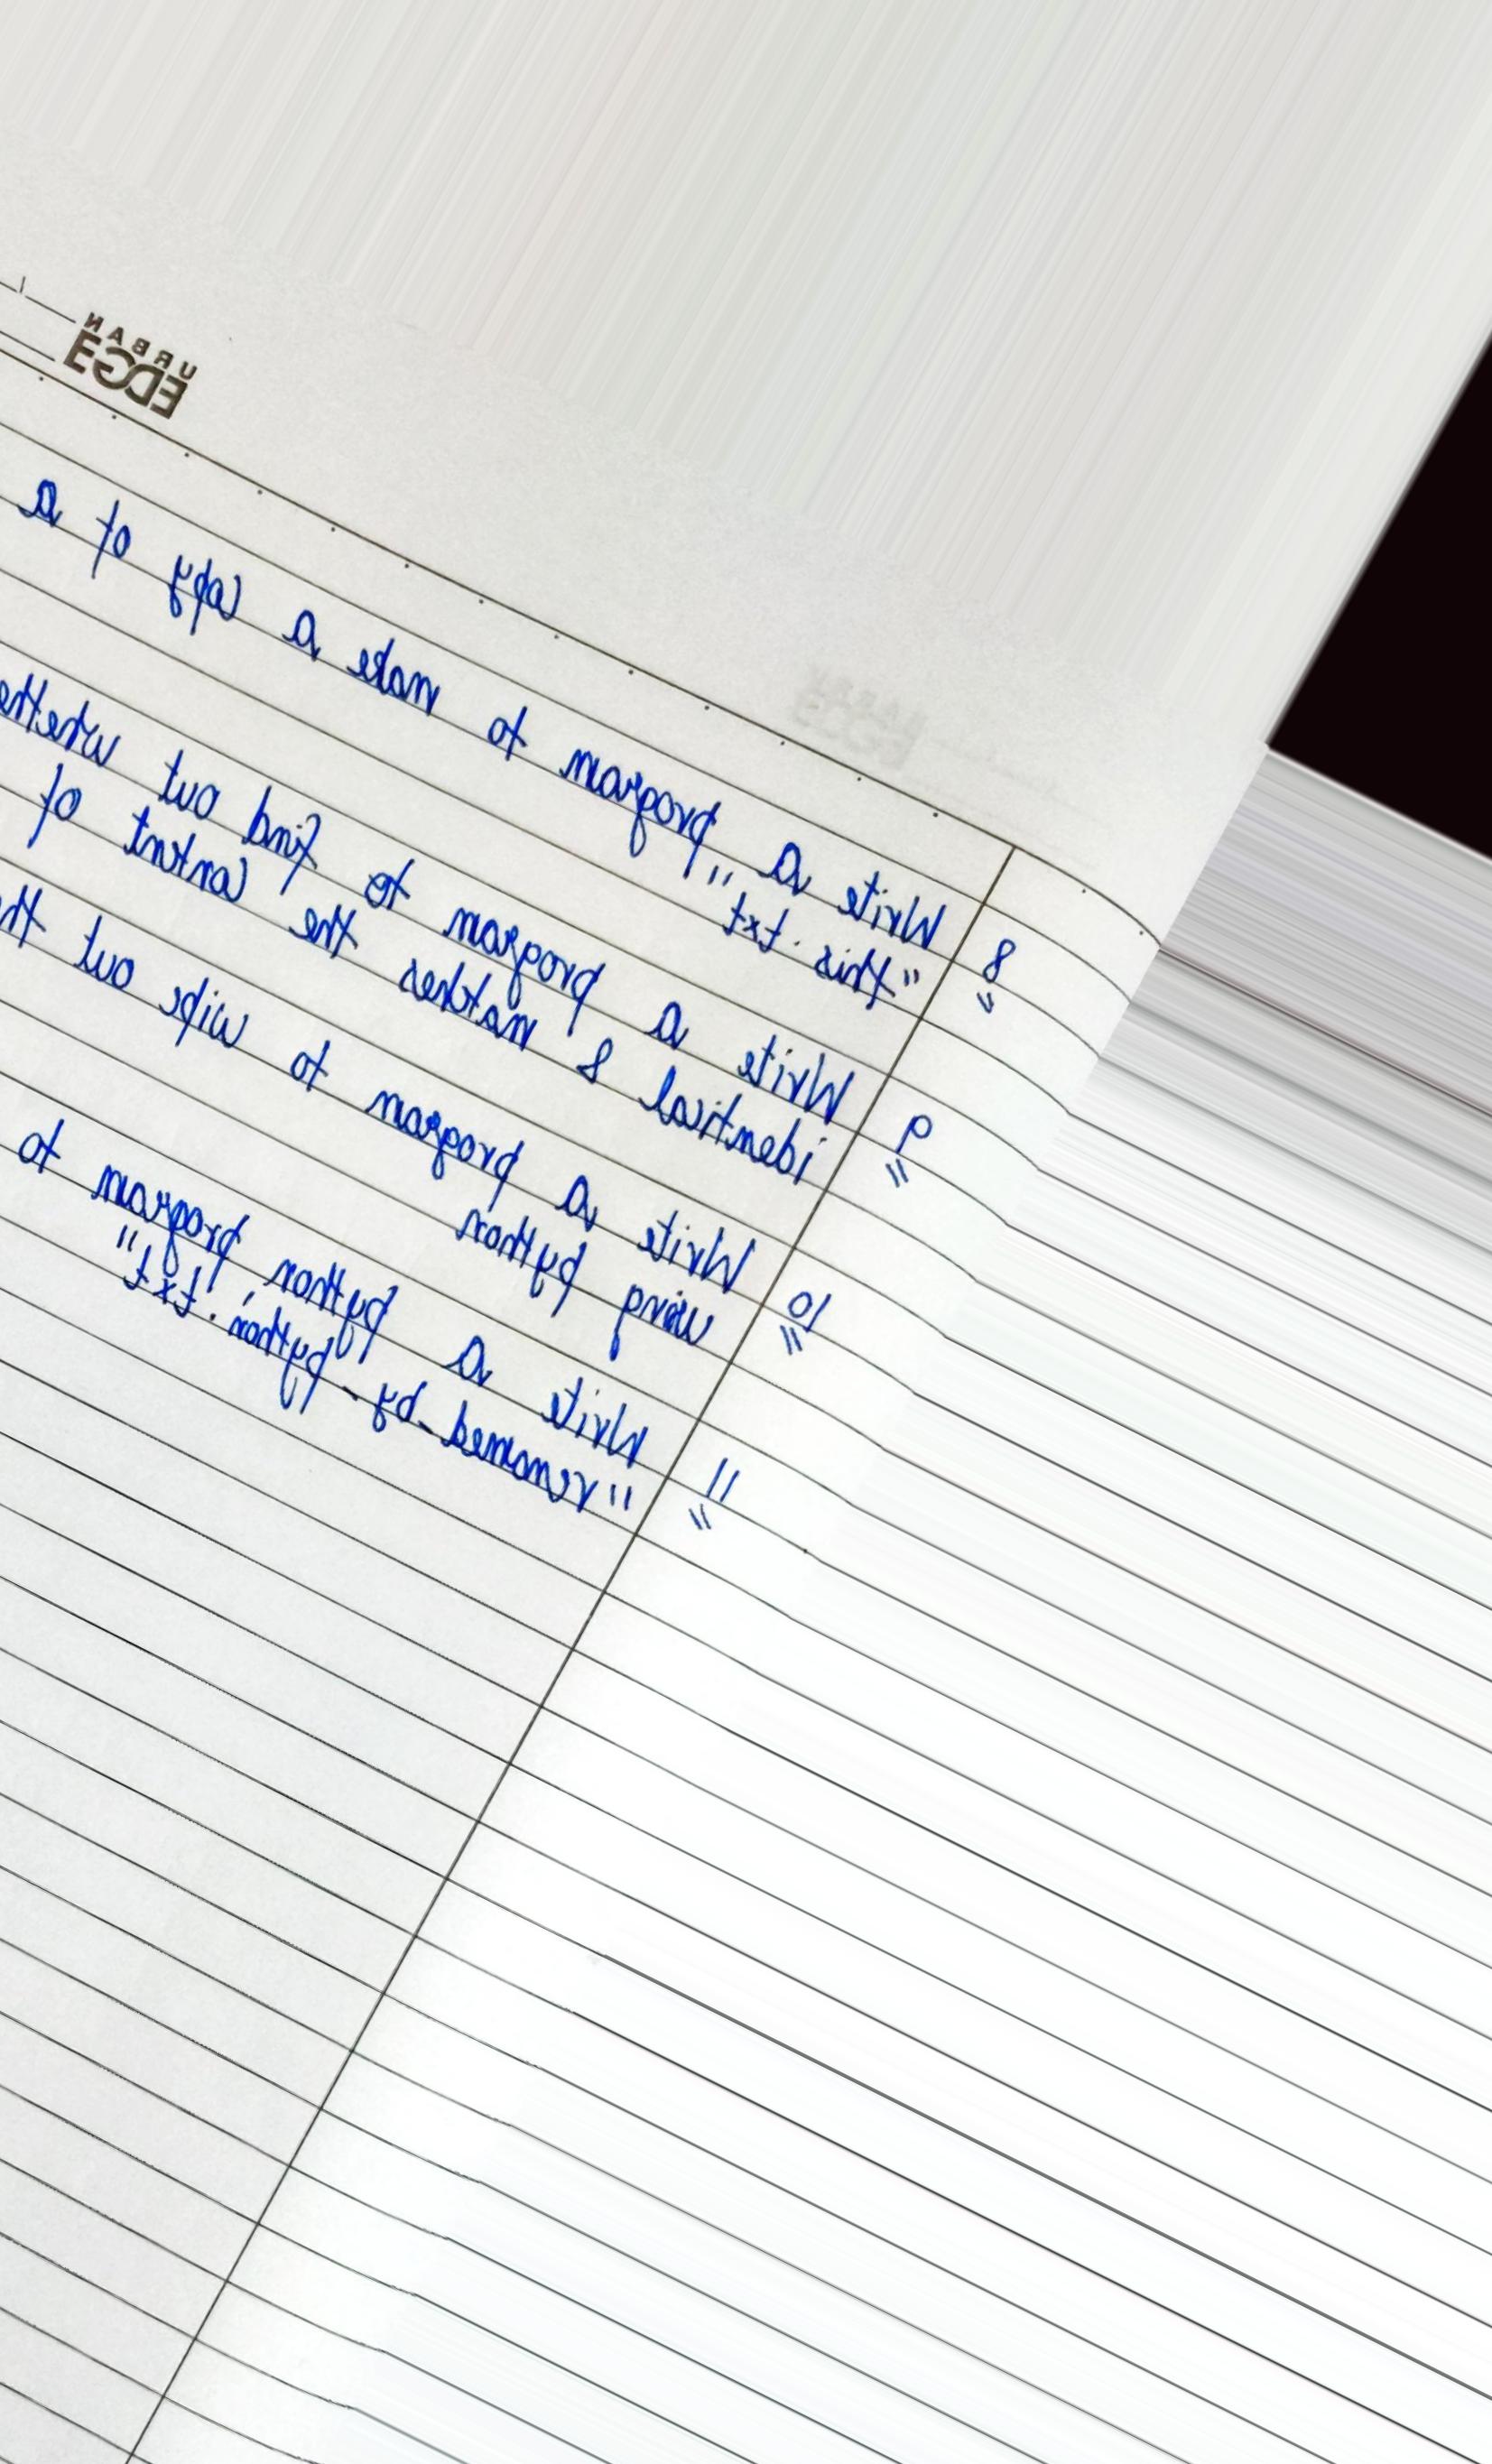 URBAN
EDGE
8 Write a program to make a copy of a
"this.txt"
9 Write a program to find out whethe
identical & matches the content of
10 Write a program to wipe out th
using python
11 Write a python program to
"renamed_by_python.txt"